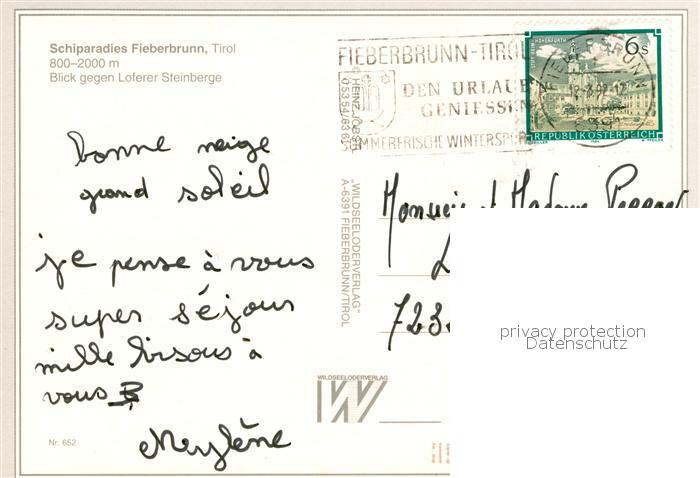 Schiparadies Fieberbrunn, Tirol
800–2000 m
Blick gegen Loferer Steinberge
bonne neige
grand soleil
je pense à vous
super séjour
mille bisous à
vous
Meylène
Nr. 652
FIEBERBRUNN-TIROL
DEN URLAUB
GENIESSEN
SOMMERFRISCHE WINTERSPORT
6s
REPUBLIK ÖSTERREICH
"WILDSEELODERVERLAG"
A-6391 FIEBERBRUNN/TIROL
Monsieur et Madame
723
WILDSEELODERVERLAG
W
privacy protection
Datenschutz